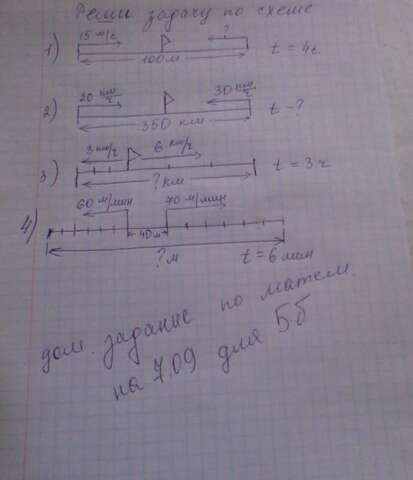 Реши задачу по схеме
1) 15 м/с ?
100 м t = 4с
2) 20 км/ч 30 км/ч
350 км t - ?
3) 3 км/ч 6 км/ч
? км t = 3 ч
4) 60 м/мин 70 м/мин
40 м
? м t = 6 мин
дом. задание по матем.
на 7.09 для 5б